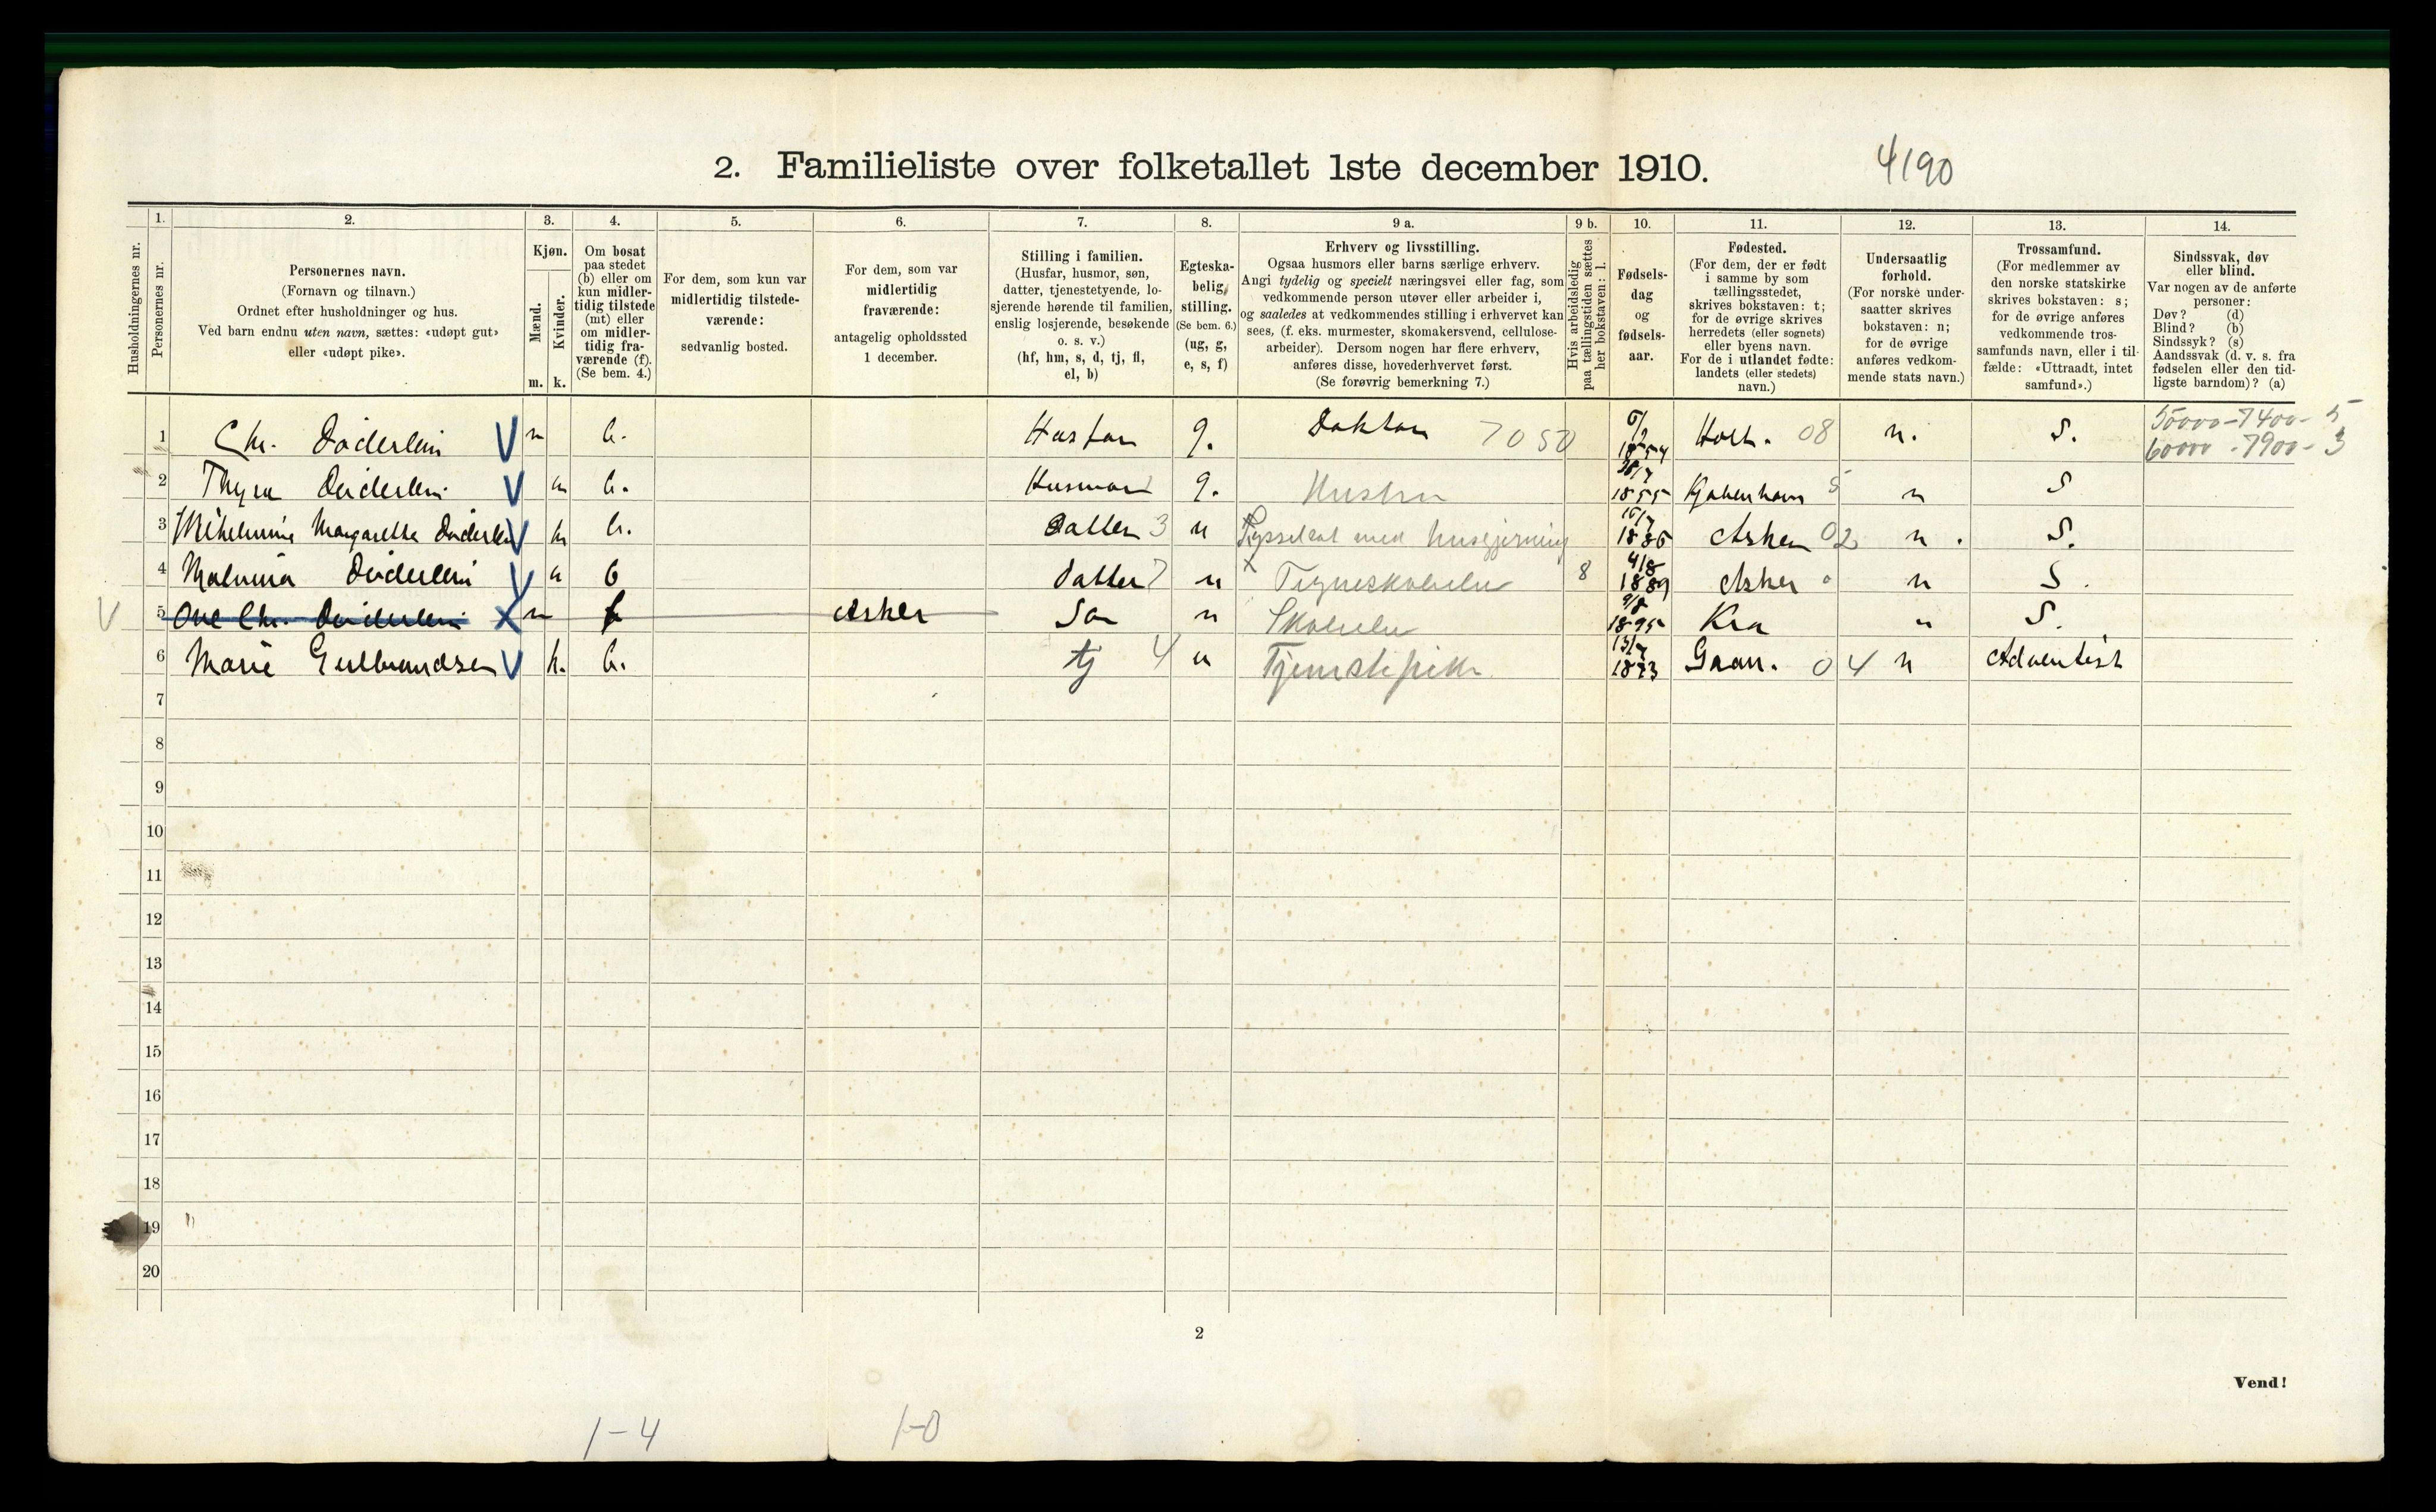 2. Familieliste over folketallet 1ste december 1910.
4190
Husholdningernes nr.
1.
Personernes nr.
2.
Personernes navn.
(Fornavn og tilnavn.)
Ordnet efter husholdninger og hus.
Ved barn endnu uten navn, sættes: «udøpt gut»
eller «udøpt pike».
3.
Kjøn.
Mænd.
Kvinder.
m. k.
4.
Om bosat
paa stedet
(b) eller om
kun midler-
tidig tilstede
(mt) eller
om midler-
tidig fra-
værende (f).
(Se bem. 4.)
5.
For dem, som kun var
midlertidig tilstede-
værende:
sedvanlig bosted.
6.
For dem, som var
midlertidig
fraværende:
antagelig opholdssted
1 december.
7.
Stilling i familien.
(Husfar, husmor, søn,
datter, tjenestetyende, lo-
sjerende hørende til familien,
enslig losjerende, besøkende
o. s. v.)
(hf, hm, s, d, tj, fl,
el, b)
8.
Egteska-
belig
stilling.
(Se bem. 6.)
(ug, g,
e, s, f)
9 a.
Erhverv og livsstilling.
Ogsaa husmors eller barns særlige erhverv.
Angi tydelig og specielt næringsvei eller fag, som
vedkommende person utøver eller arbeider i,
og saaledes at vedkommendes stilling i erhvervet kan
sees, (f. eks. murmester, skomakersvend, cellulose-
arbeider). Dersom nogen har flere erhverv,
anføres disse, hovederhvervet først.
(Se forøvrig bemerkning 7.)
9 b.
Hvis arbeidsledig
paa tællingstiden sættes
her bokstaven: l.
10.
Fødsels-
dag
og
fødsels-
aar.
11.
Fødested.
(For dem, der er født
i samme by som
tællingsstedet,
skrives bokstaven: t;
for de øvrige skrives
herredets (eller sognets)
eller byens navn.
For de i utlandet fødte:
landets (eller stedets)
navn.)
12.
Undersaatlig
forhold.
(For norske under-
saatter skrives
bokstaven: n;
for de øvrige
anføres vedkom-
mende stats navn.)
13.
Trossamfund.
(For medlemmer av
den norske statskirke
skrives bokstaven: s;
for de øvrige anføres
vedkommende tros-
samfunds navn, eller i til-
fælde: «Uttraadt, intet
samfund».)
14.
Sindssvak, døv
eller blind.
Var nogen av de anførte
personer:
Døv? (d)
Blind? (b)
Sindssyk? (s)
Aandssvak (d. v. s. fra
fødselen eller den tid-
ligste barndom)? (a)
1 Chr. Döderlein V m b. Husfar g. Doktor 7050 1854 Holt. 08 n. S. 50000-7400-5
60000-7900-3
2 Thyra Döderlein V k b. Husmor g. Hustru 1855 Kjøbenhavn n S
3 Wilhelmine Margarethe Döderlein V k b. Datter 3 u Sysselsat med husgjerning 1886 Asker 02 n . S.
4 Malvina Döderlein V k b Datter 7 u x Tegneskoleelev 8 4/8 1889 Asker n S.
V 5 Ove Chr. Döderlein X m f Asker Søn u Skoleelev 9/8 1895 Kra n S.
6 Marie Gulbrandsen V k. b. tj 4 u Tjenestepike 1873 Gran. 04 n Adventist
7
8
9
10
11
12
13
14
15
16
17
18
19
20
2
Vend!
1-4
1-0